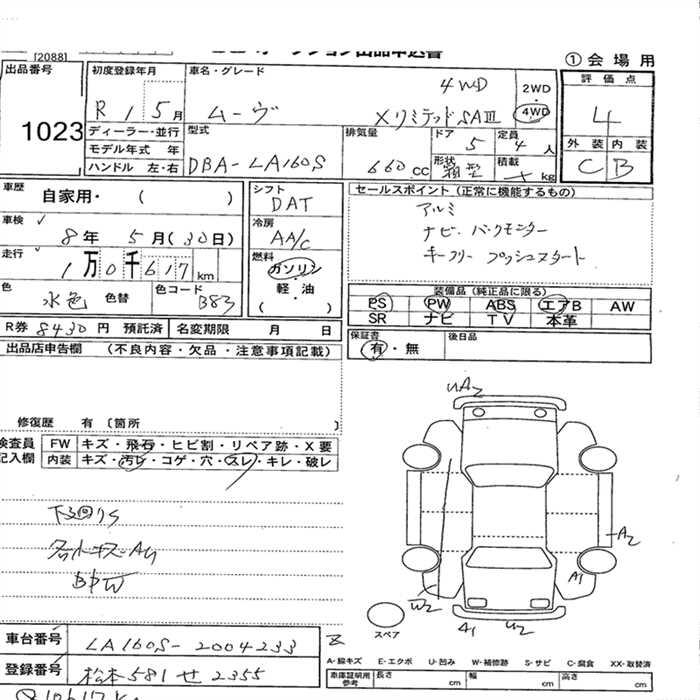 [2088]
① 会場用
出品番号
1023
初度登録年月
R 1 5月
車名・グレード
4WD
ムーヴ XリミテッドSAⅢ
2WD
・
4WD
評価点
4
外装 内装
C B
ディーラー・並行
モデル年式 年
ハンドル 左・右
型式
DBA-LA160S
排気量
660 cc
ドア
5
定員
4 人
形状
箱型
積載
kg
車歴
自家用・( )
車検
8年 5月(30日)
走行
1万0千617 km
色
水色 色替
色コード
B83
シフト
DAT
冷房
AA/C
燃料
ガソリン
軽・油
( )
セールスポイント(正常に機能するもの)
アルミ
ナビ.バックモニター
キーフリー プッシュスタート
装備品(純正品に限る)
PS PW ABS エアB AW
SR ナビ TV 本革
R券 8430 円 預託済 名変期限 月 日
保証書
有・無
後日品
出品店申告欄 (不良内容・欠品・注意事項記載)
修復歴 有〔箇所 〕
検査員
記入欄
FW キズ・飛石・ヒビ割・リペア跡・X要
内装 キズ・汚レ・コゲ・穴・スレ・キレ・破レ
下回りS
UA2
A2
A1
W2
A1 U2
スペア
車台番号
LA160S-2004233
登録番号
松本581せ2355
A-線キズ E-エクボ U-凹み W-補修跡 S-サビ C-腐食 XX-取替済
車庫証明用
参考
長さ cm 幅 cm 高さ cm